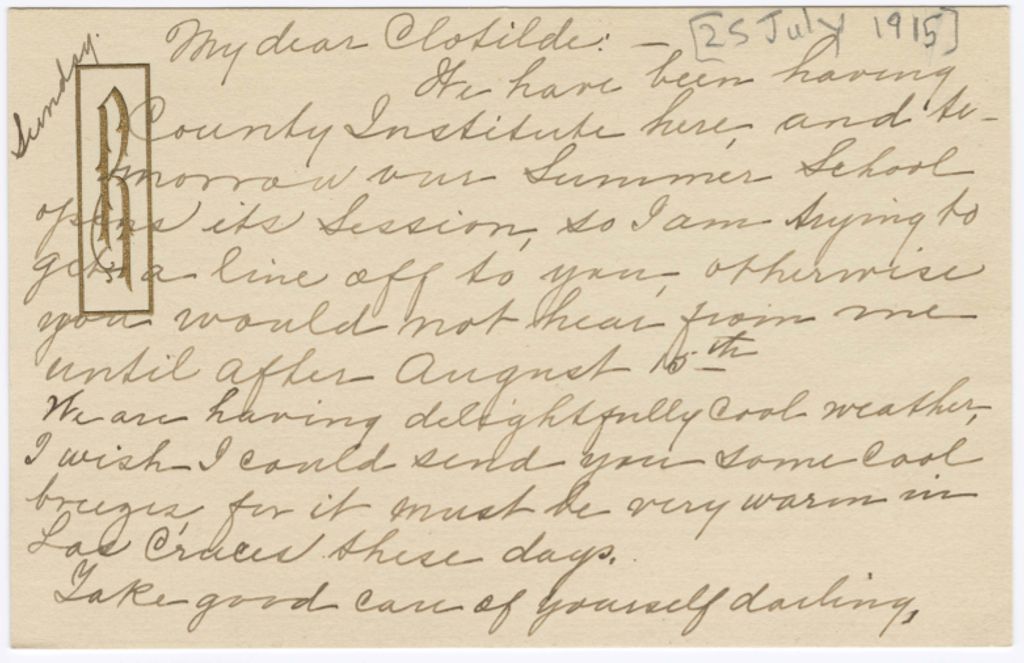 Sunday.
My dear Clotilde: — [25 July 1915]
We have been having
County Institute here, and to-
morrow our Summer School
opens its Session, so I am trying to
get a line off to you, otherwise
you would not hear from me
until after August 15th
We are having delightfully cool weather,
I wish I could send you some cool
breezes, for it must be very warm in
Las Cruces these days.
Take good care of yourself darling,